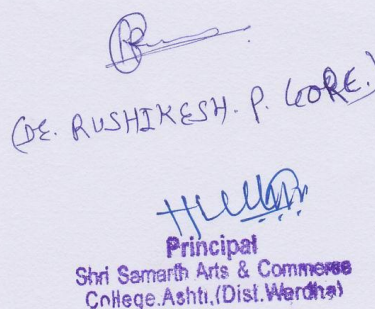 (DR. RUSHIKESH. P. GORE.)
Principal
Shri Samarth Arts & Commerse
College.Ashti,(Dist.Wardha)